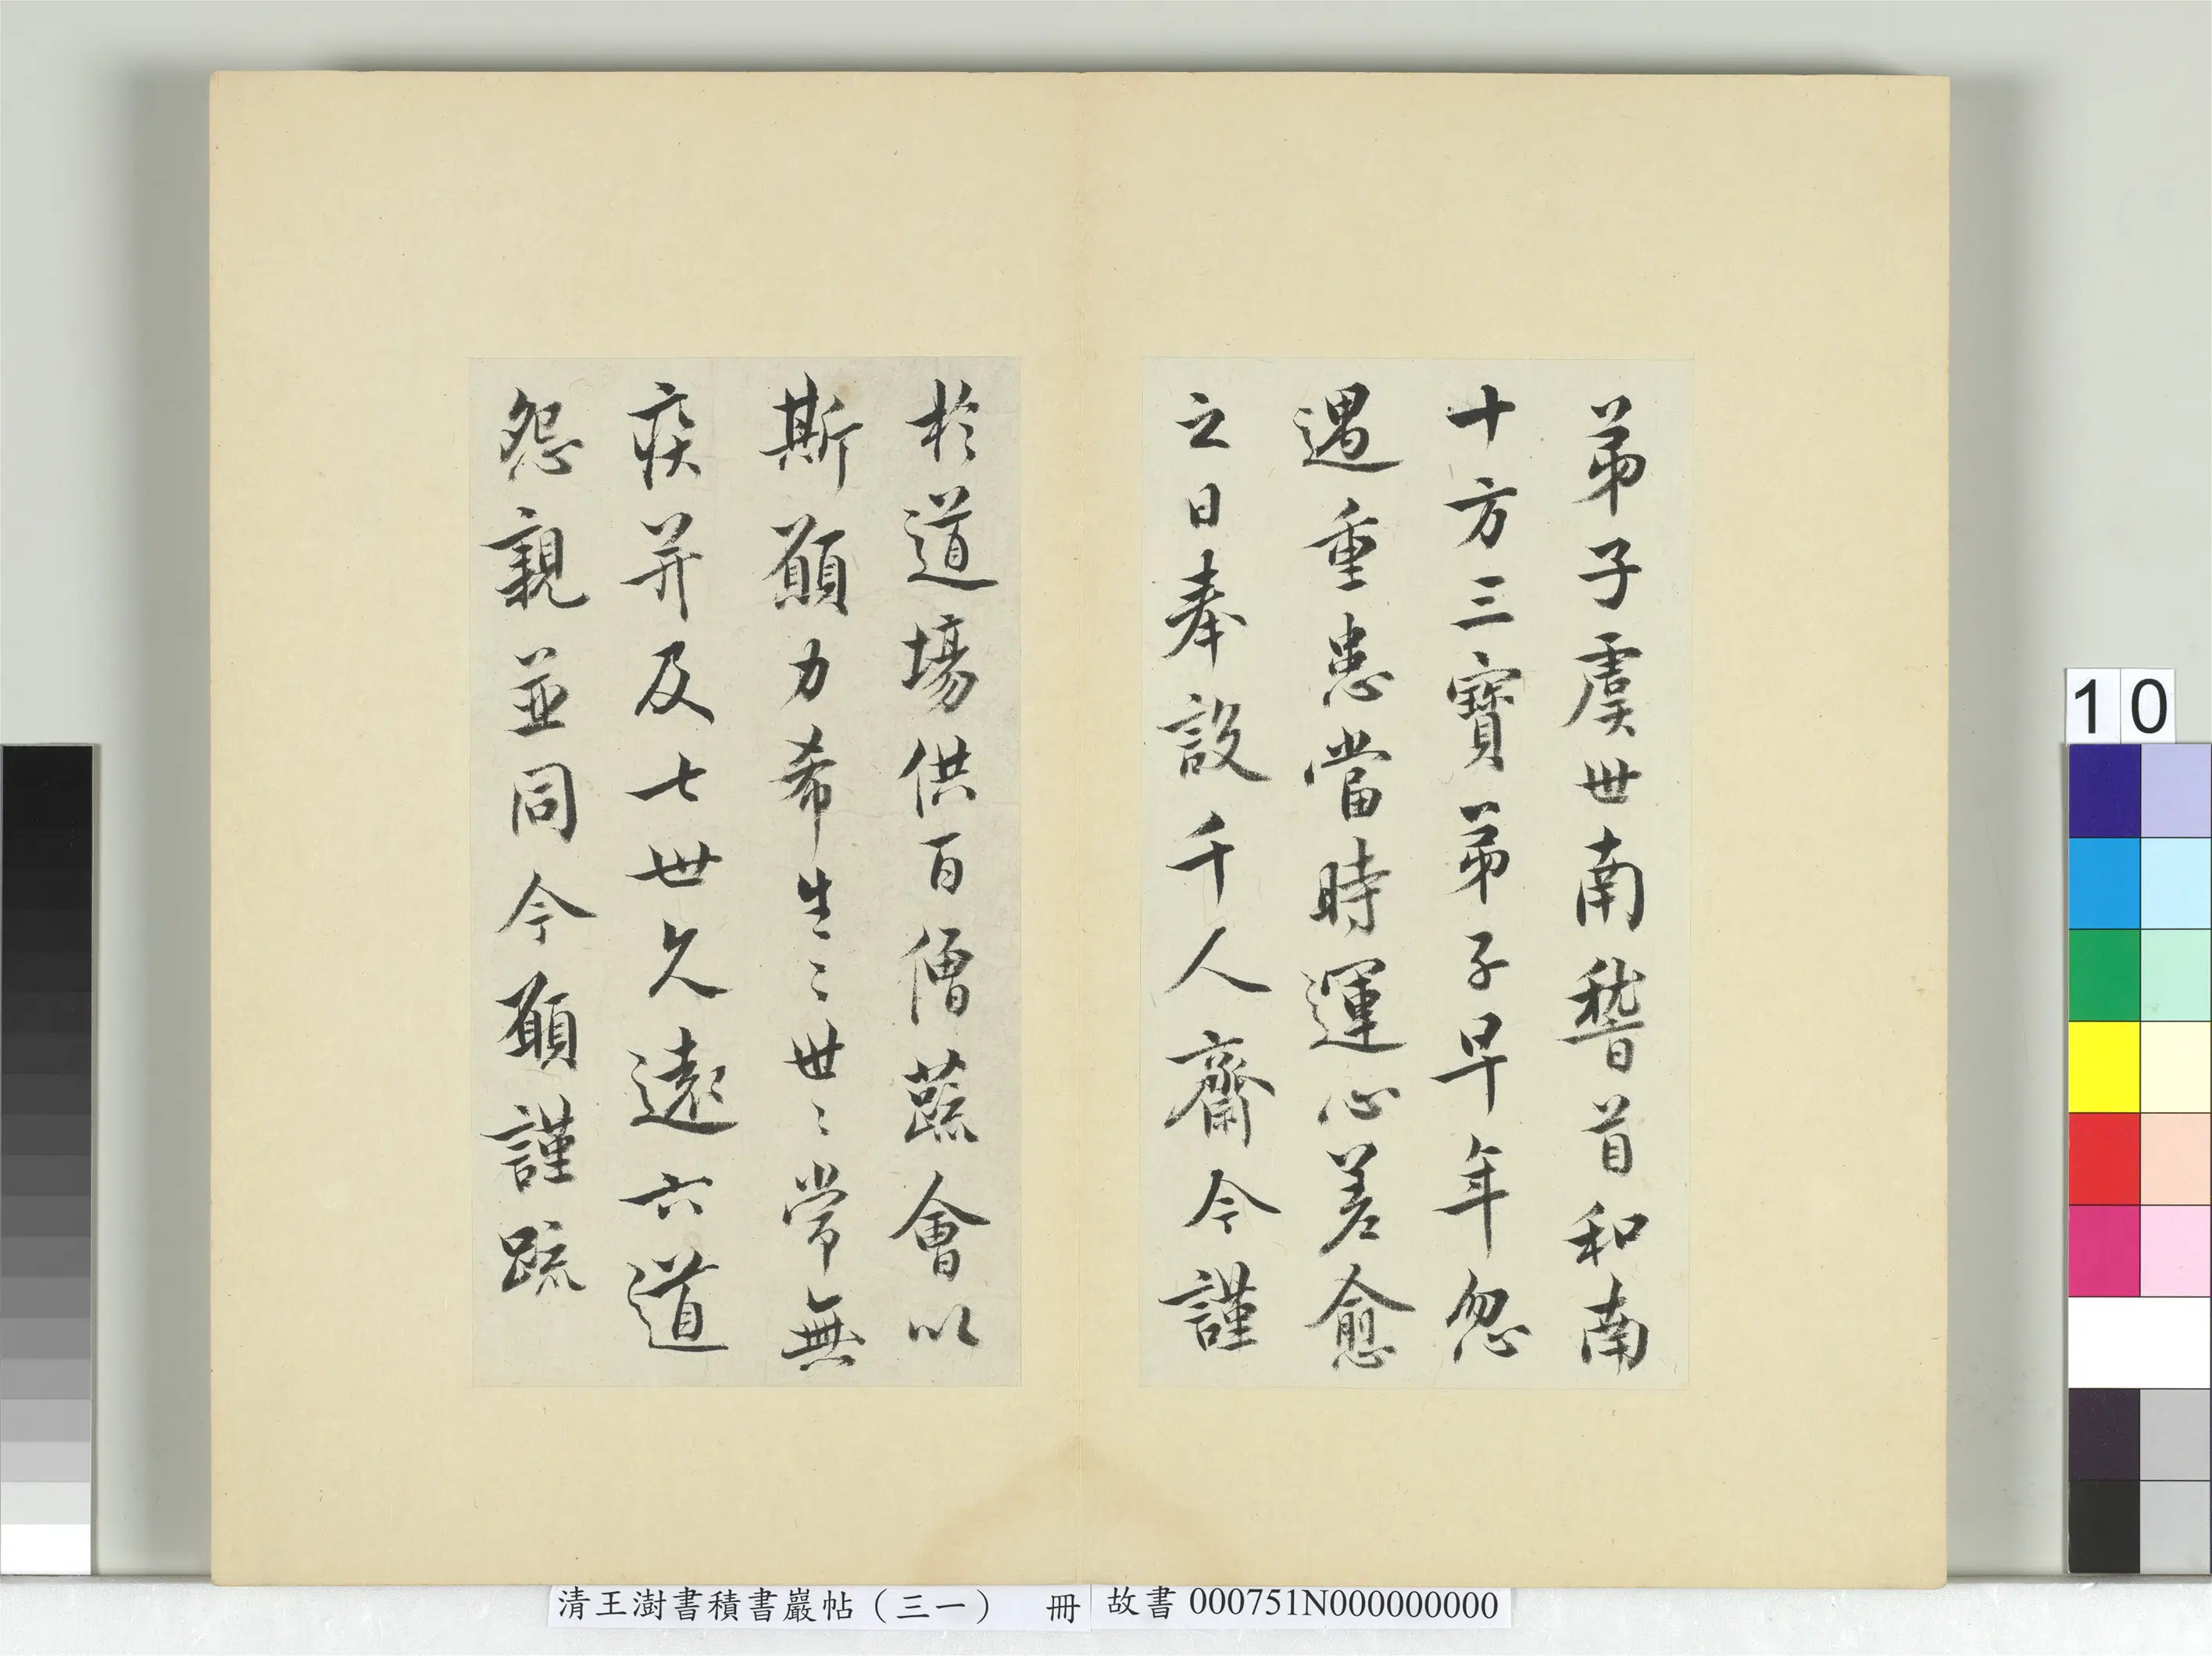 弟子虞世南稽首和南
十方三寶弟子早年忽
遇重患當時運心差愈
之日奉設千人齋今謹
於道場供百僧蔬會以
斯願力希生〻世〻常無
疾并及七世久遠六道
怨親並同今願謹疏
清王澍書積書巖帖（三一） 冊
故書 000751N000000000
10